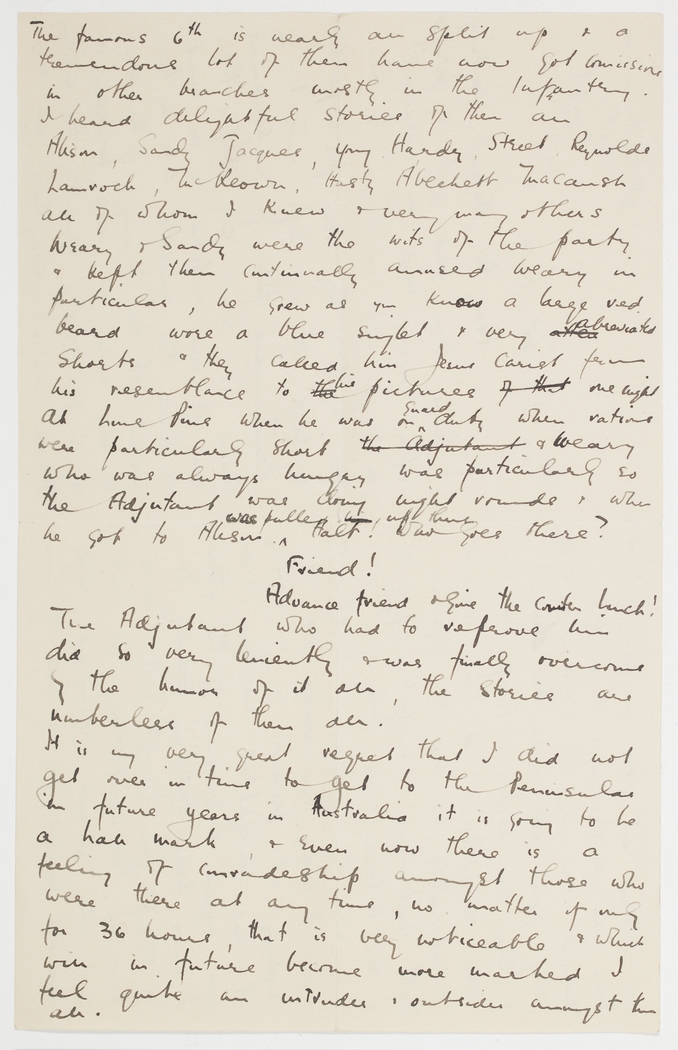 The famous 6th is nearly all split up & a
tremendous lot of them have now got comissions
in other branches mostly in the Infantry.
I heard delightful stories of them all
Alison, Sandy Jacques, young Hardy, Street Reynolds
Lamroch, McKeown, Hasty Abeckett Macansh
all of whom I knew & very many others
Weary & Sandy were the wits of the party
& kept them continually amused Weary in
particular, he grew as you know a large red
beard wore a blue singlet & very abreviated
Shorts & they called him Jesus Christ from
his resemblance to his pictures one night
At Lone Pine when he was on guard duty when rations
were particularly short & Weary
who was always hungry was particularly so
the Adjutant was doing night rounds & when
he got to Alison was pulled up thus
Halt! Who goes there?
Friend!
Advance friend & Give the counter lunch!
The Adjutant who had to reprove him
did so very leniently & was finally overcome
by the humor of it all, the stories are
numberless of them all.
It is my very great regret that I did not
get over in time to get to the Peninsular
in future years in Australia it is going to be
a hall mark, & Even now there is a
feeling of comradeship amongst those who
were there at any time, no matter if only
for 36 hours, that is very noticeable & which
will in future become more marked I
feel quite an intruder & outsider amongst them
all.